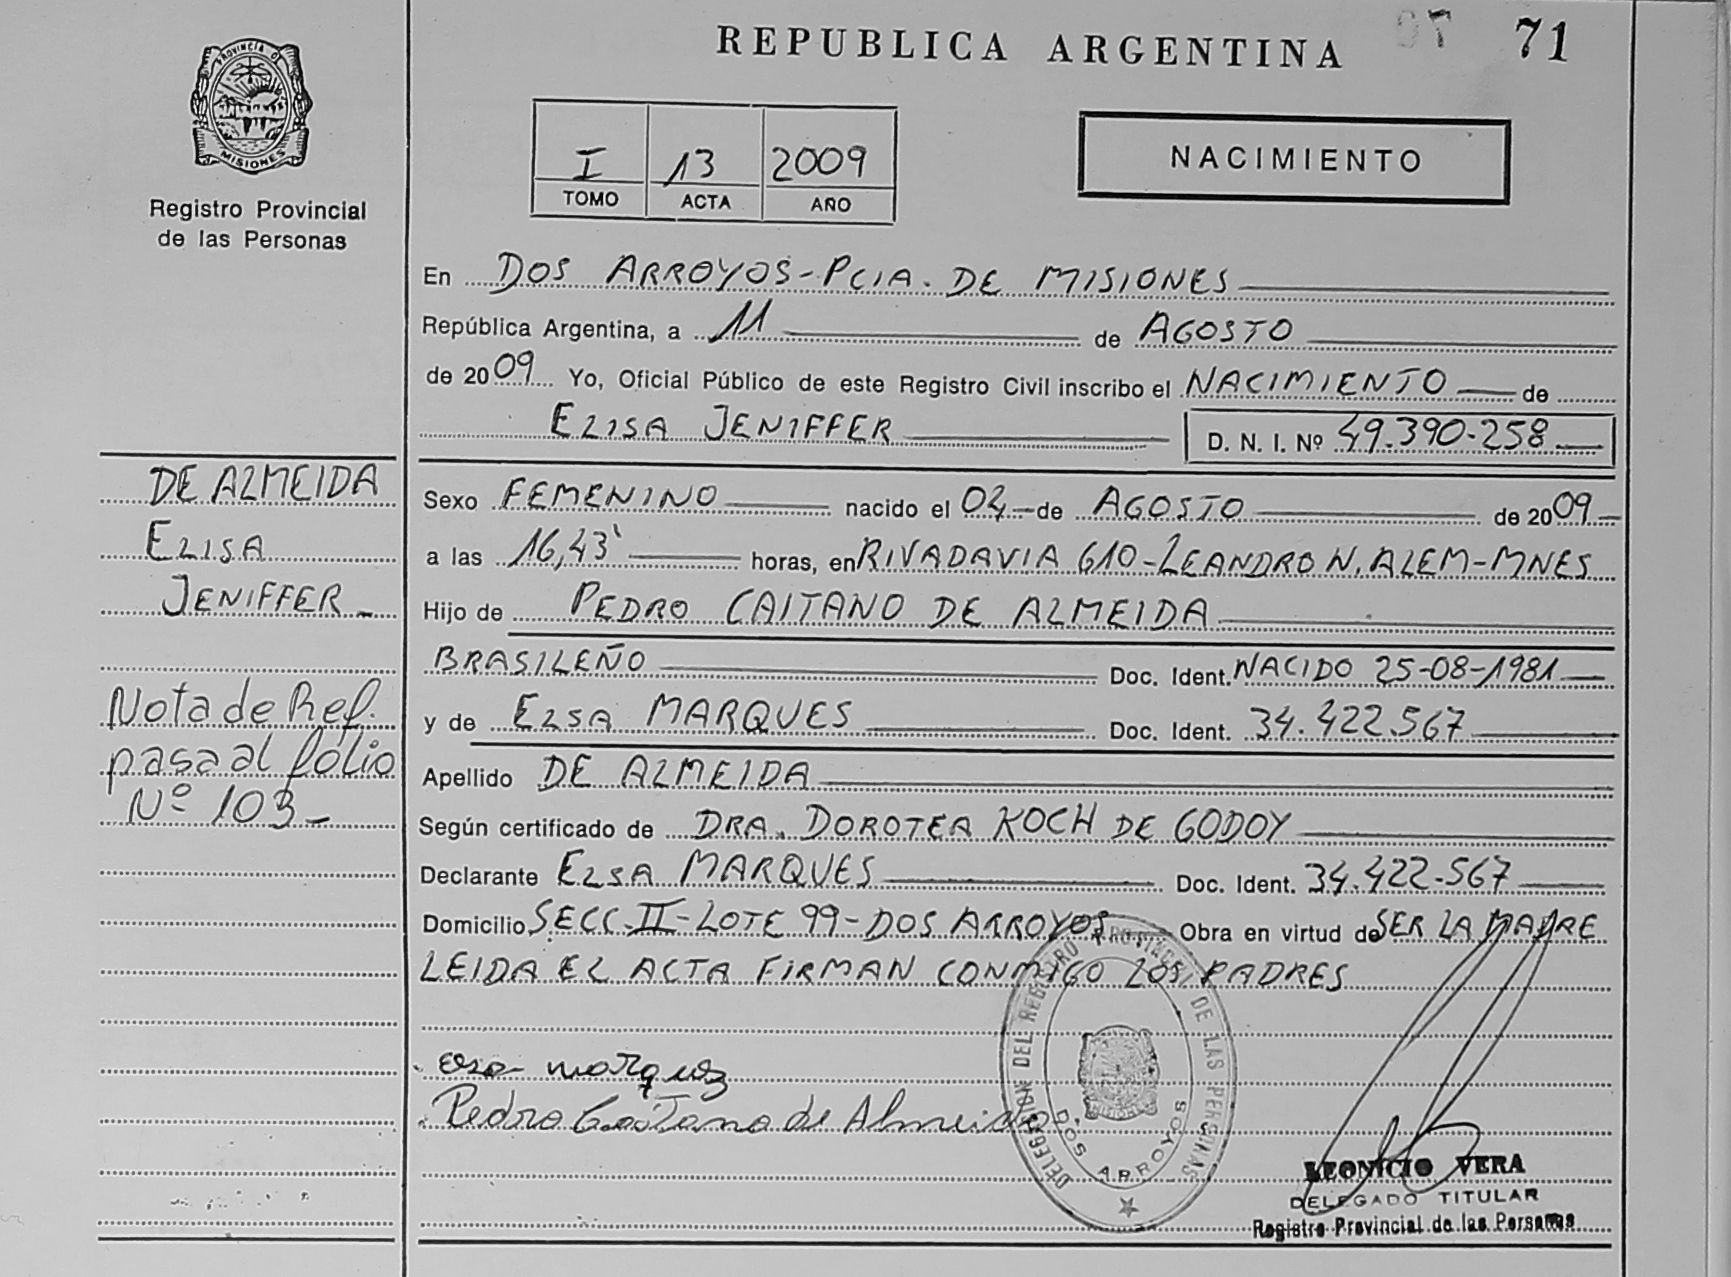 REPUBLICA ARGENTINA
71
PROVINCIA D
MISIONES
Registro Provincial
de las Personas
I 13 2009
TOMO ACTA AÑO
NACIMIENTO
En DOS ARROYOS-PCIA. DE MISIONES
República Argentina, a 11 de AGOSTO
de 2009 Yo, Oficial Público de este Registro Civil inscribo el NACIMIENTO de
ELISA JENIFFER D. N. I. Nº 49.390.258
Sexo FEMENINO nacido el 04 de AGOSTO de 2009
a las 16,43' horas, en RIVADAVIA 610-LEANDRO N. ALEM-MNES
Hijo de PEDRO CAITANO DE ALMEIDA
BRASILEÑO Doc. Ident. NACIDO 25-08-1981
y de ELSA MARQUES Doc. Ident. 34.422.567
Apellido DE ALMEIDA
Según certificado de DRA. DOROTEA KOCH DE GODOY
Declarante ELSA MARQUES Doc. Ident. 34.422.567
Domicilio SECC. II-LOTE 99-DOS ARROYOS Obra en virtud de SER LA MADRE
LEIDA EL ACTA FIRMAN CONMIGO LOS PADRES
DE ALMEIDA
ELISA
JENIFFER
Nota de Ref.
pasa al folio
Nº 103
marquez
Pedro Caitano de Almeida
DELEGACION DEL REGISTRO PROVINCIAL DE LAS PERSONAS
DOS ARROYOS
LEONICIO VERA
DELEGADO TITULAR
Registro Provincial de las Personas